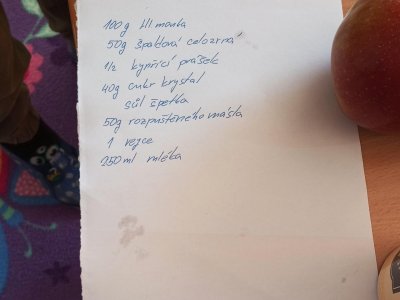 100g Hl mouka
50g špaldová celozrná
1/2 kypřící prášek
40g cukr krystal
sůl špetka
50g rozpuštěného másla
1 vejce
250ml mléka